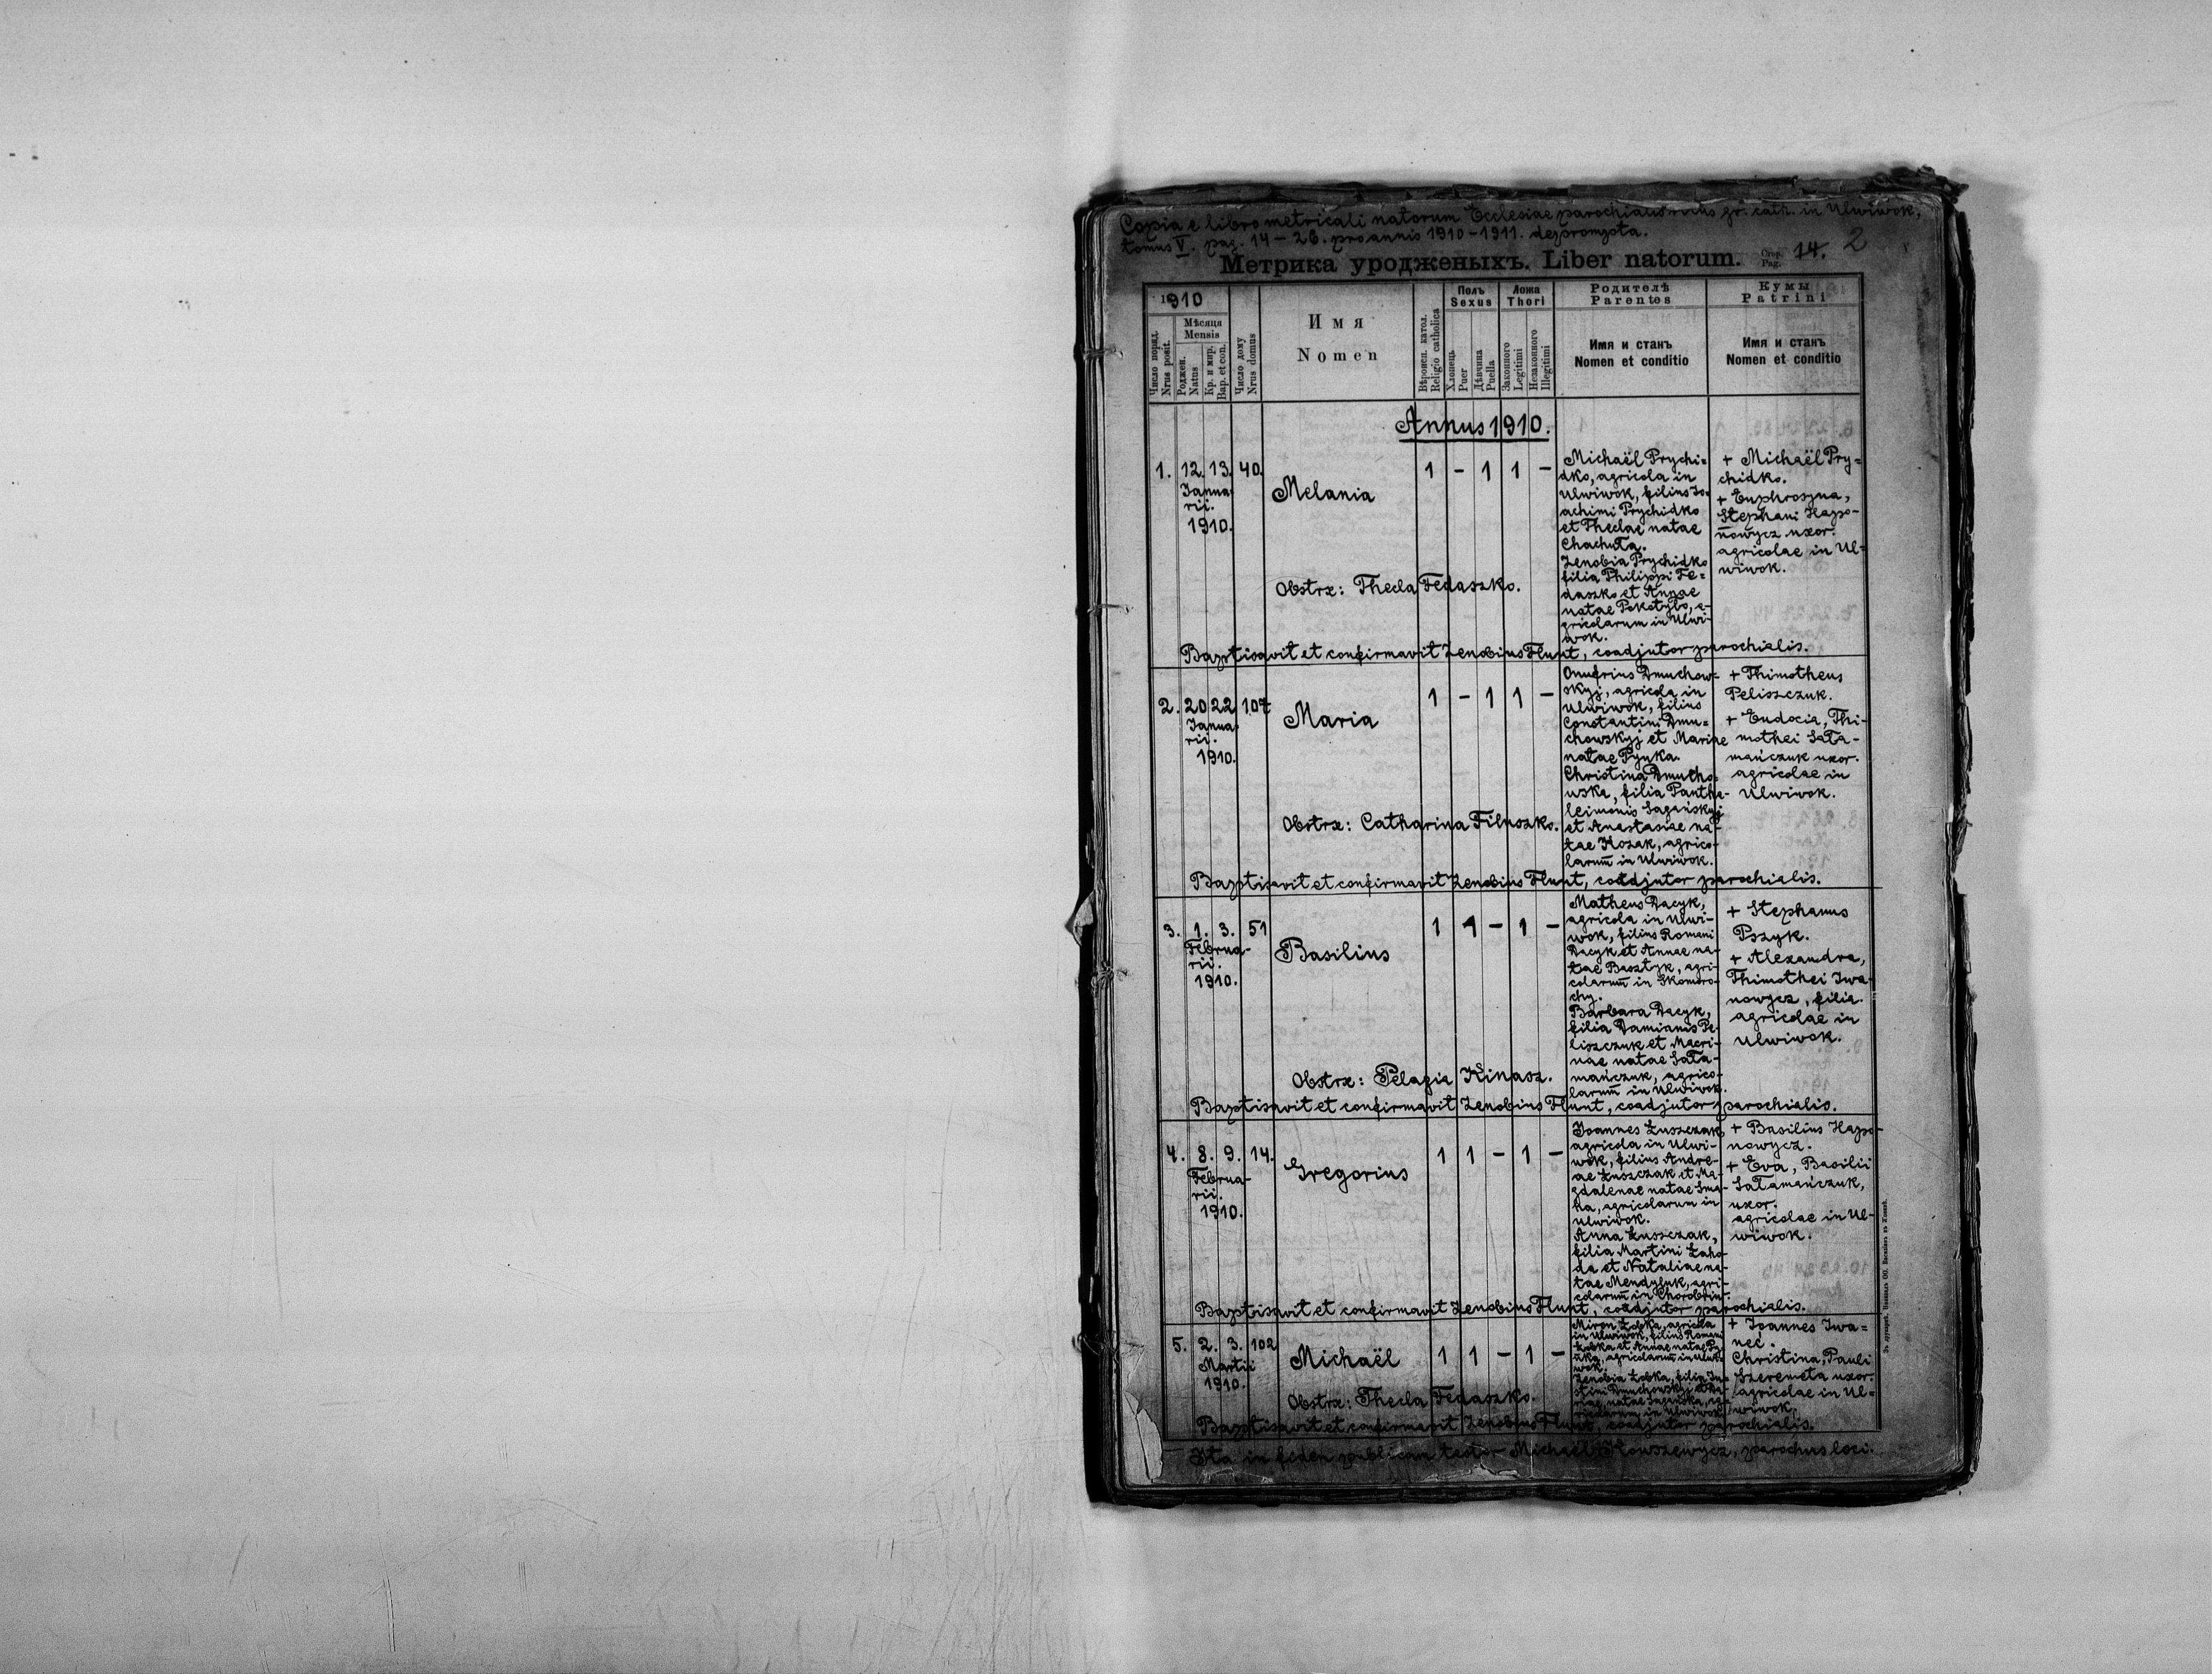 Copia e libro metricali natorum Ecclesiae parochialis ritus gr. cath. in Ulwiwok,
tomus V. pag. 14 – 26. pro annis 1910–1911. deprompta.
2
Метрика уродженыхъ. Liber natorum. Стор. Pag. 14.
1910
Число поряд. Nrus posit.
Мѣсяця Mensis
Роджен. Natus
Кр. и мир. Bap. et con.
Число дому Nrus domus
Имя
Nomen
Вѣроисп. катол. Religio catholica
Полъ Sexus
Хлопець Puer
Дѣвчина Puella
Ложа Thori
Законного Legitimi
Незаконного Illegitimi
Родителѣ
Parentes
Имя и станъ
Nomen et conditio
Кумы
Patrini
Имя и станъ
Nomen et conditio
Annus 1910.
1. 12. 13. 40.
Janua-
rii.
1910.
Melania
1 – 1 1 –
Michaël Prychi-
dko, agricola in
Ulwiwok, filius Jo-
achimi Prychidko
et Theclae natae
Chachuła.
Zenobia Prychidko
filia Philippi Fe-
daszko et Annae
natae Pokotyło, a-
gricolarum in Ulwi-
wok.
+ Michaël Pry-
chidko.
+ Euphrosyna,
Stephani Hapo-
nowycz uxor.
agricolae in Ul-
wiwok.
Obstrx: Thecla Fedaszko.
Baptisavit et confirmavit Zenobius Flunt, coadjutor parochialis.
2. 20 22 107
Janua-
rii.
1910.
Maria
1 – 1 1 –
Onufrius Dmuchow-
skyj, agricola in
Ulwiwok, filius
Constantini Dmu-
chowskyj et Mariae
natae Pynka.
Christina Dmucho-
wska, filia Pantha-
leimonis Sagańskyj
et Anastasiae na-
tae Kozak, agrico-
larum in Ulwiwok.
+ Thimotheus
Peliszczuk.
+ Eudocia, Thi-
mothei Sała-
mańczuk uxor.
agricolae in
Ulwiwok.
Obstrx: Catharina Filuszko.
Baptisavit et confirmavit Zenobius Flunt, coadjutor parochialis.
3. 1. 3. 51
Februa-
rii.
1910.
Basilius
1 1 – 1 –
Matheus Dacyk,
agricola in Ulwi-
wok, filius Romani
Dacyk et Annae na-
tae Basztyk, agri-
colarum in Skomoro-
chy.
Barbara Dacyk,
filia Damianis Pe-
liszczuk et Macri-
nae natae Sała-
mańczuk, agrico-
larum in Ulwiwok.
+ Stephanus
Pszyk.
+ Alexandra,
Thimothei Iwa-
nowycz, filia.
agricolae in
Ulwiwok.
Obstrx: Pelagia Kinasz.
Baptisavit et confirmavit Zenobius Flunt, coadjutor parochialis.
4. 8. 9. 14.
Februa-
rii.
1910.
Gregorius
1 1 – 1 –
Joannes Łuszczak
agricola in Ulwi-
wok, filius Andre-
ae Łuszczak et Ma-
gdalenae natae Sma-
ha, agricolarum in
Ulwiwok.
Anna Łuszczak,
filia Martini Łaho-
da et Nataliae na-
tae Mendyluk, agri-
colarum in Chorobrów.
+ Basilius Hapo-
nowycz.
+ Eva, Basilii
Sałamańczuk,
uxor.
agricolae in Ul-
wiwok.
Baptisavit et confirmavit Zenobius Flunt, coadjutor parochialis.
5. 2. 3. 102
Martii
1910.
Michaël
1 1 – 1 –
Miron Łobka, agricola
in Ulwiwok, filius Romani
Łobka et Annae natae
agricolarum in Ulwi-
wok.
Zenobia Łobka, filia
Dmuchowskyj
natae
in Ulwiwok.
+ Joannes Iwa-
neć.
Christina, Pauli
Szeremeta uxor.
agricolae in Ul-
wiwok.
Obstrx: Thecla Fedaszko.
Baptisavit et confirmavit Zenobius Flunt, coadjutor parochialis.
Ita in fidem publicam testor Michaël parochus loci.